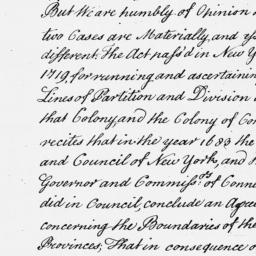 But We are humbly of Opinion
two Cases are Materially, and
different. The Act pass'd in New
1719, for running and ascertaining
Lines of Partition and Division
that Colony, and the Colony of
recites that in the year 1683 the
and Council of New York, and
Governor and Commiss.rs of
did in Council, conclude an
concerning the Boundaries of the
Provinces, That in consequence